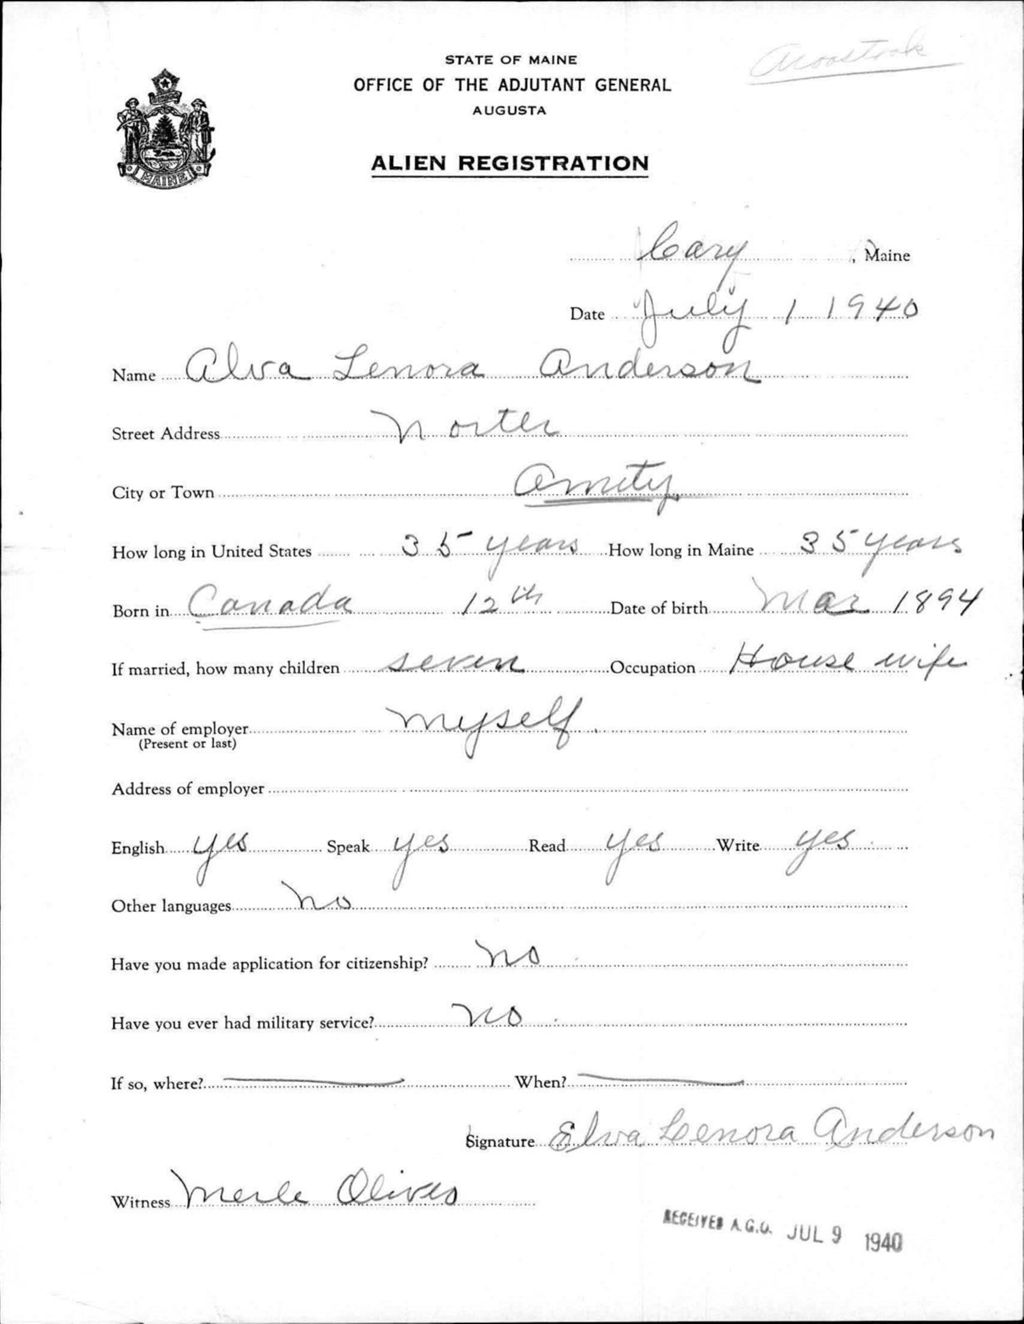 Aroostook
STATE OF MAINE
OFFICE OF THE ADJUTANT GENERAL
AUGUSTA
ALIEN REGISTRATION
MAINE
Cary, Maine
Date July 1 1940
Name Alva Lenora Anderson
Street Address
City or Town Amity
How long in United States 35 years How long in Maine 35 years
Born in Canada 12th Date of birth Mar 1894
If married, how many children seven Occupation House wife
Name of employer myself
(Present or last)
Address of employer
English yes Speak yes Read yes Write yes
Other languages no
Have you made application for citizenship? no
Have you ever had military service? no
If so, where? When?
Signature Elva Lenora Anderson
Witness Merle
RECEIVED A.G.O. JUL 9 1940